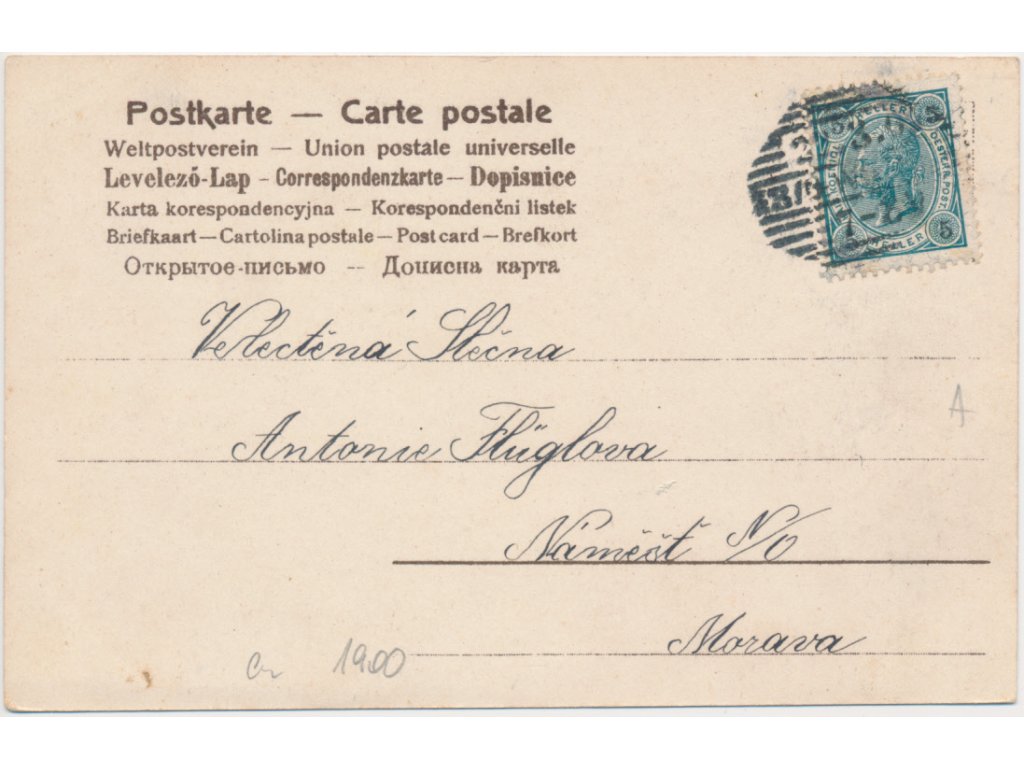 Postkarte — Carte postale
Weltpostverein — Union postale universelle
Levelező-Lap – Correspondenzkarte — Dopisnice
Karta korespondencyjna — Korespondenčni listek
Briefkaart — Cartolina postale — Post card — Brefkort
Открытое-письмо — Дописна карта
5
5
HELLER
Velectěná Slečna
Antonie Flüglova
Náměšť N/O
Morava
1900
A